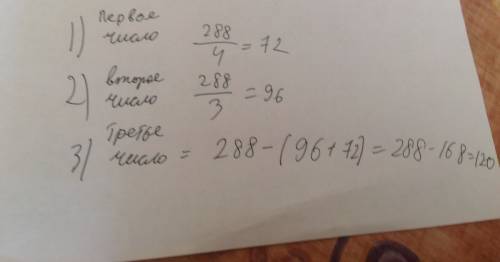 1) Первое число 288/4 = 72
2) второе число 288/3 = 96
3) Третье число = 288 - (96 + 72) = 288 - 168 = 120